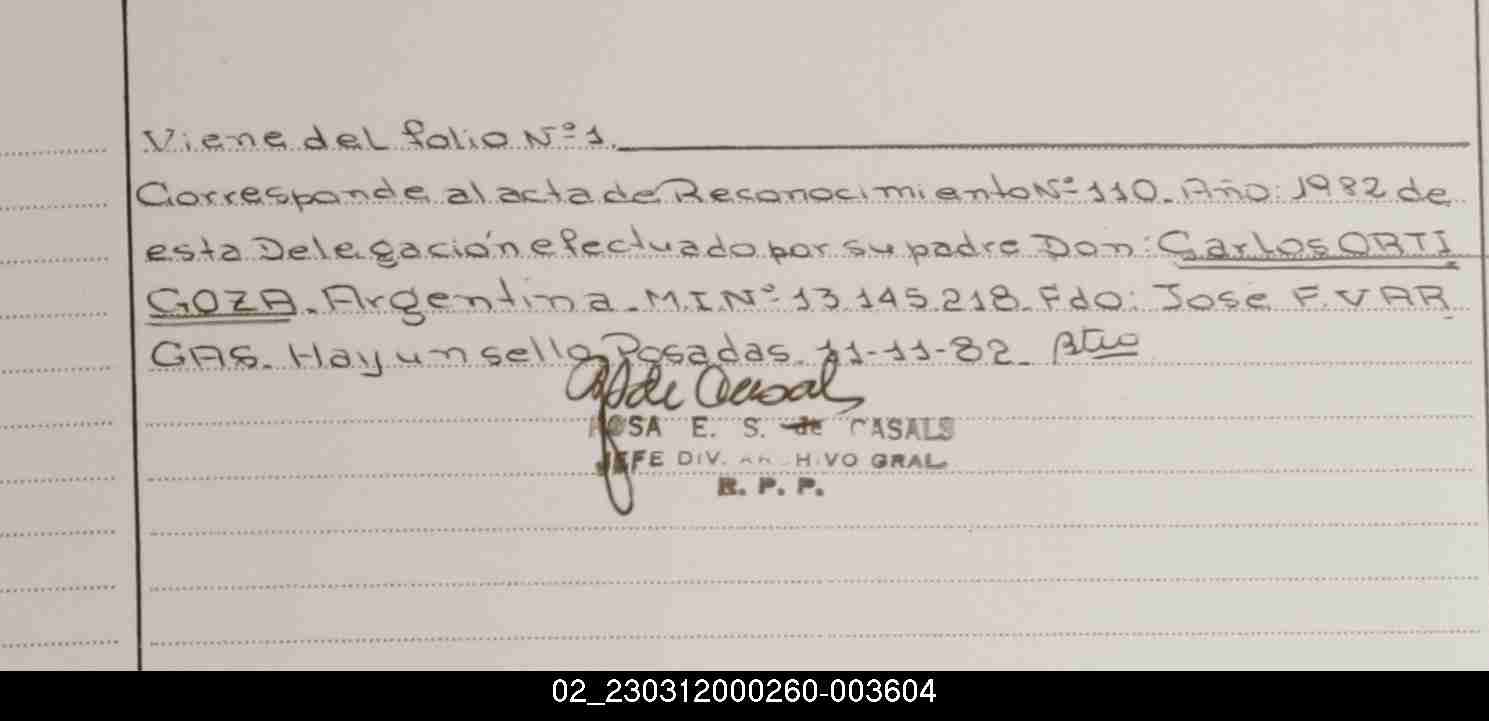 Viene del folio Nº 1.
Corresponde al acta de Reconocimiento Nº 110. Año: 1982 de
esta Delegación efectuado por su padre Don: Carlos ORTI
GOZA. Argentina. M.I.Nº 13.145.218. Fdo: Jose F. VAR
GAS. Hay un sello Posadas. 11-11-82.
de Casals
ROSA E. S. de CASALS
JEFE DIV. ARCHIVO GRAL
R. P. P.
02_230312000260-003604